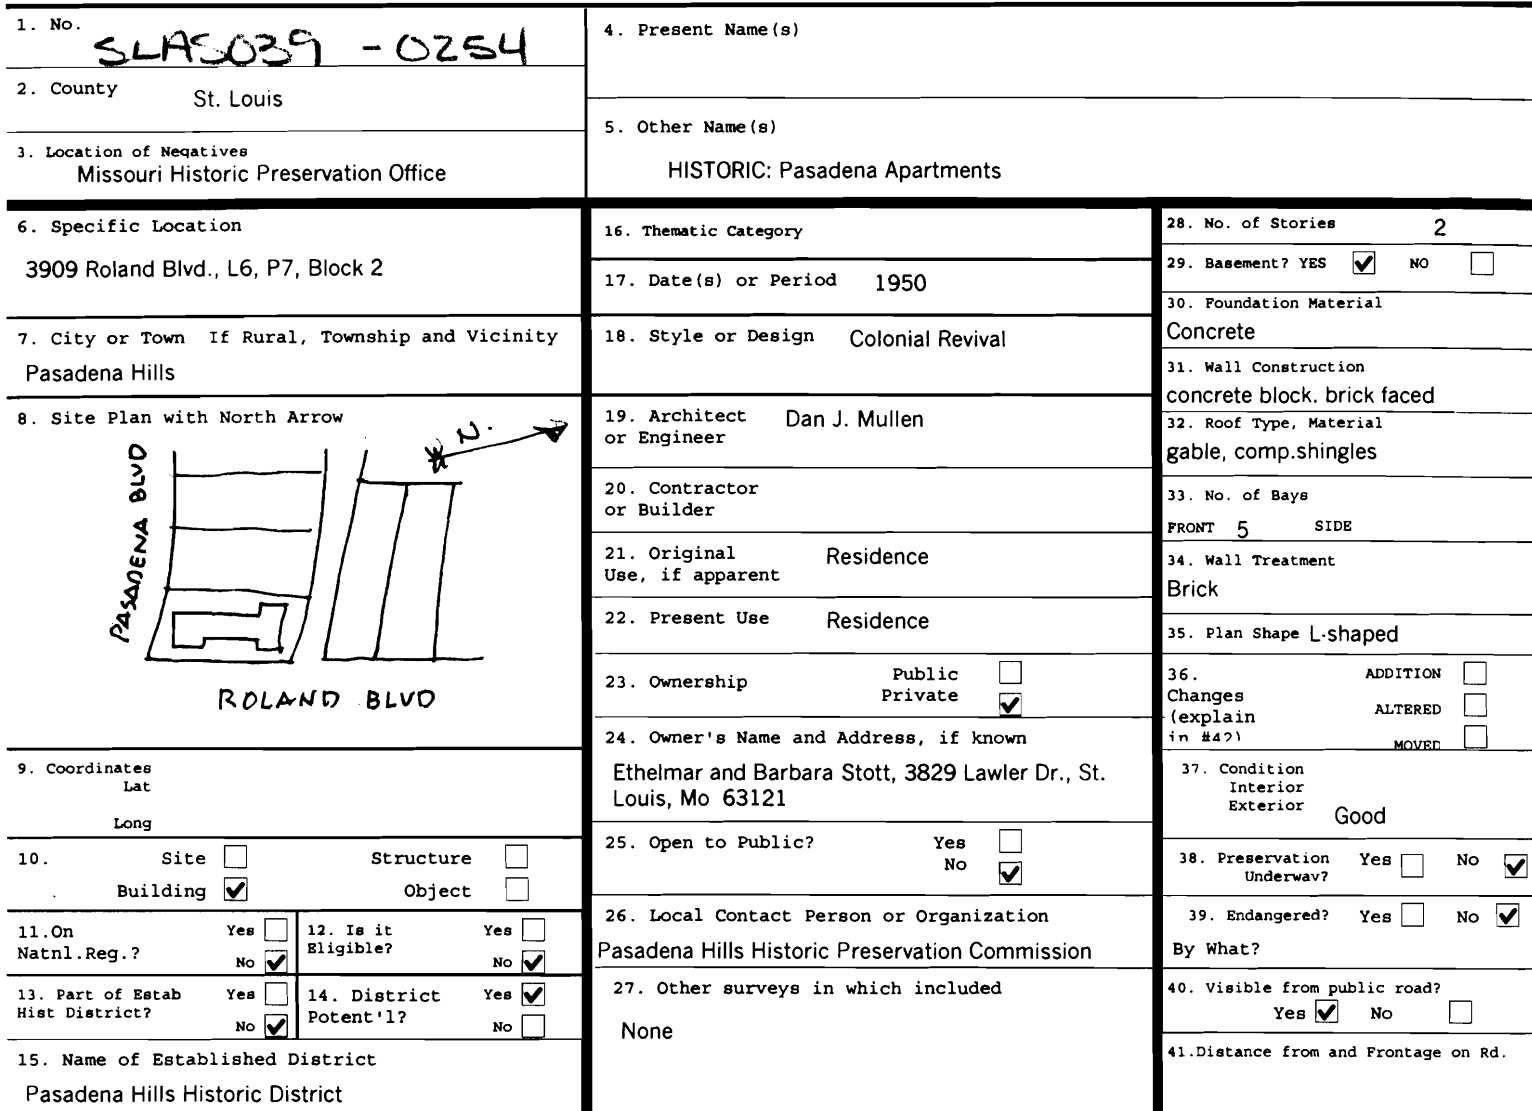 1. No. SLAS039 - 0254
2. County St. Louis
3. Location of Negatives
Missouri Historic Preservation Office
4. Present Name(s)
5. Other Name(s)
HISTORIC: Pasadena Apartments
6. Specific Location
3909 Roland Blvd., L6, P7, Block 2
7. City or Town If Rural, Township and Vicinity
Pasadena Hills
8. Site Plan with North Arrow
N.
PASADENA BLVD
ROLAND BLVD
9. Coordinates
Lat
Long
10. Site Structure
Building Object
11.On Natnl.Reg.? Yes No
12. Is it Eligible? Yes No
13. Part of Estab Hist District? Yes No
14. District Potent'l? Yes No
15. Name of Established District
Pasadena Hills Historic District
16. Thematic Category
17. Date(s) or Period 1950
18. Style or Design Colonial Revival
19. Architect or Engineer Dan J. Mullen
20. Contractor
or Builder
21. Original Use, if apparent Residence
22. Present Use Residence
23. Ownership Public
Private
24. Owner's Name and Address, if known
Ethelmar and Barbara Stott, 3829 Lawler Dr., St.
Louis, Mo 63121
25. Open to Public? Yes
No
26. Local Contact Person or Organization
Pasadena Hills Historic Preservation Commission
27. Other surveys in which included
None
28. No. of Stories 2
29. Basement? YES NO
30. Foundation Material
Concrete
31. Wall Construction
concrete block. brick faced
32. Roof Type, Material
gable, comp.shingles
33. No. of Bays
FRONT 5 SIDE
34. Wall Treatment
Brick
35. Plan Shape L-shaped
36. ADDITION
Changes
(explain ALTERED
in #42) MOVED
37. Condition
Interior
Exterior Good
38. Preservation Yes No
Underway?
39. Endangered? Yes No
By What?
40. Visible from public road?
Yes No
41.Distance from and Frontage on Rd.